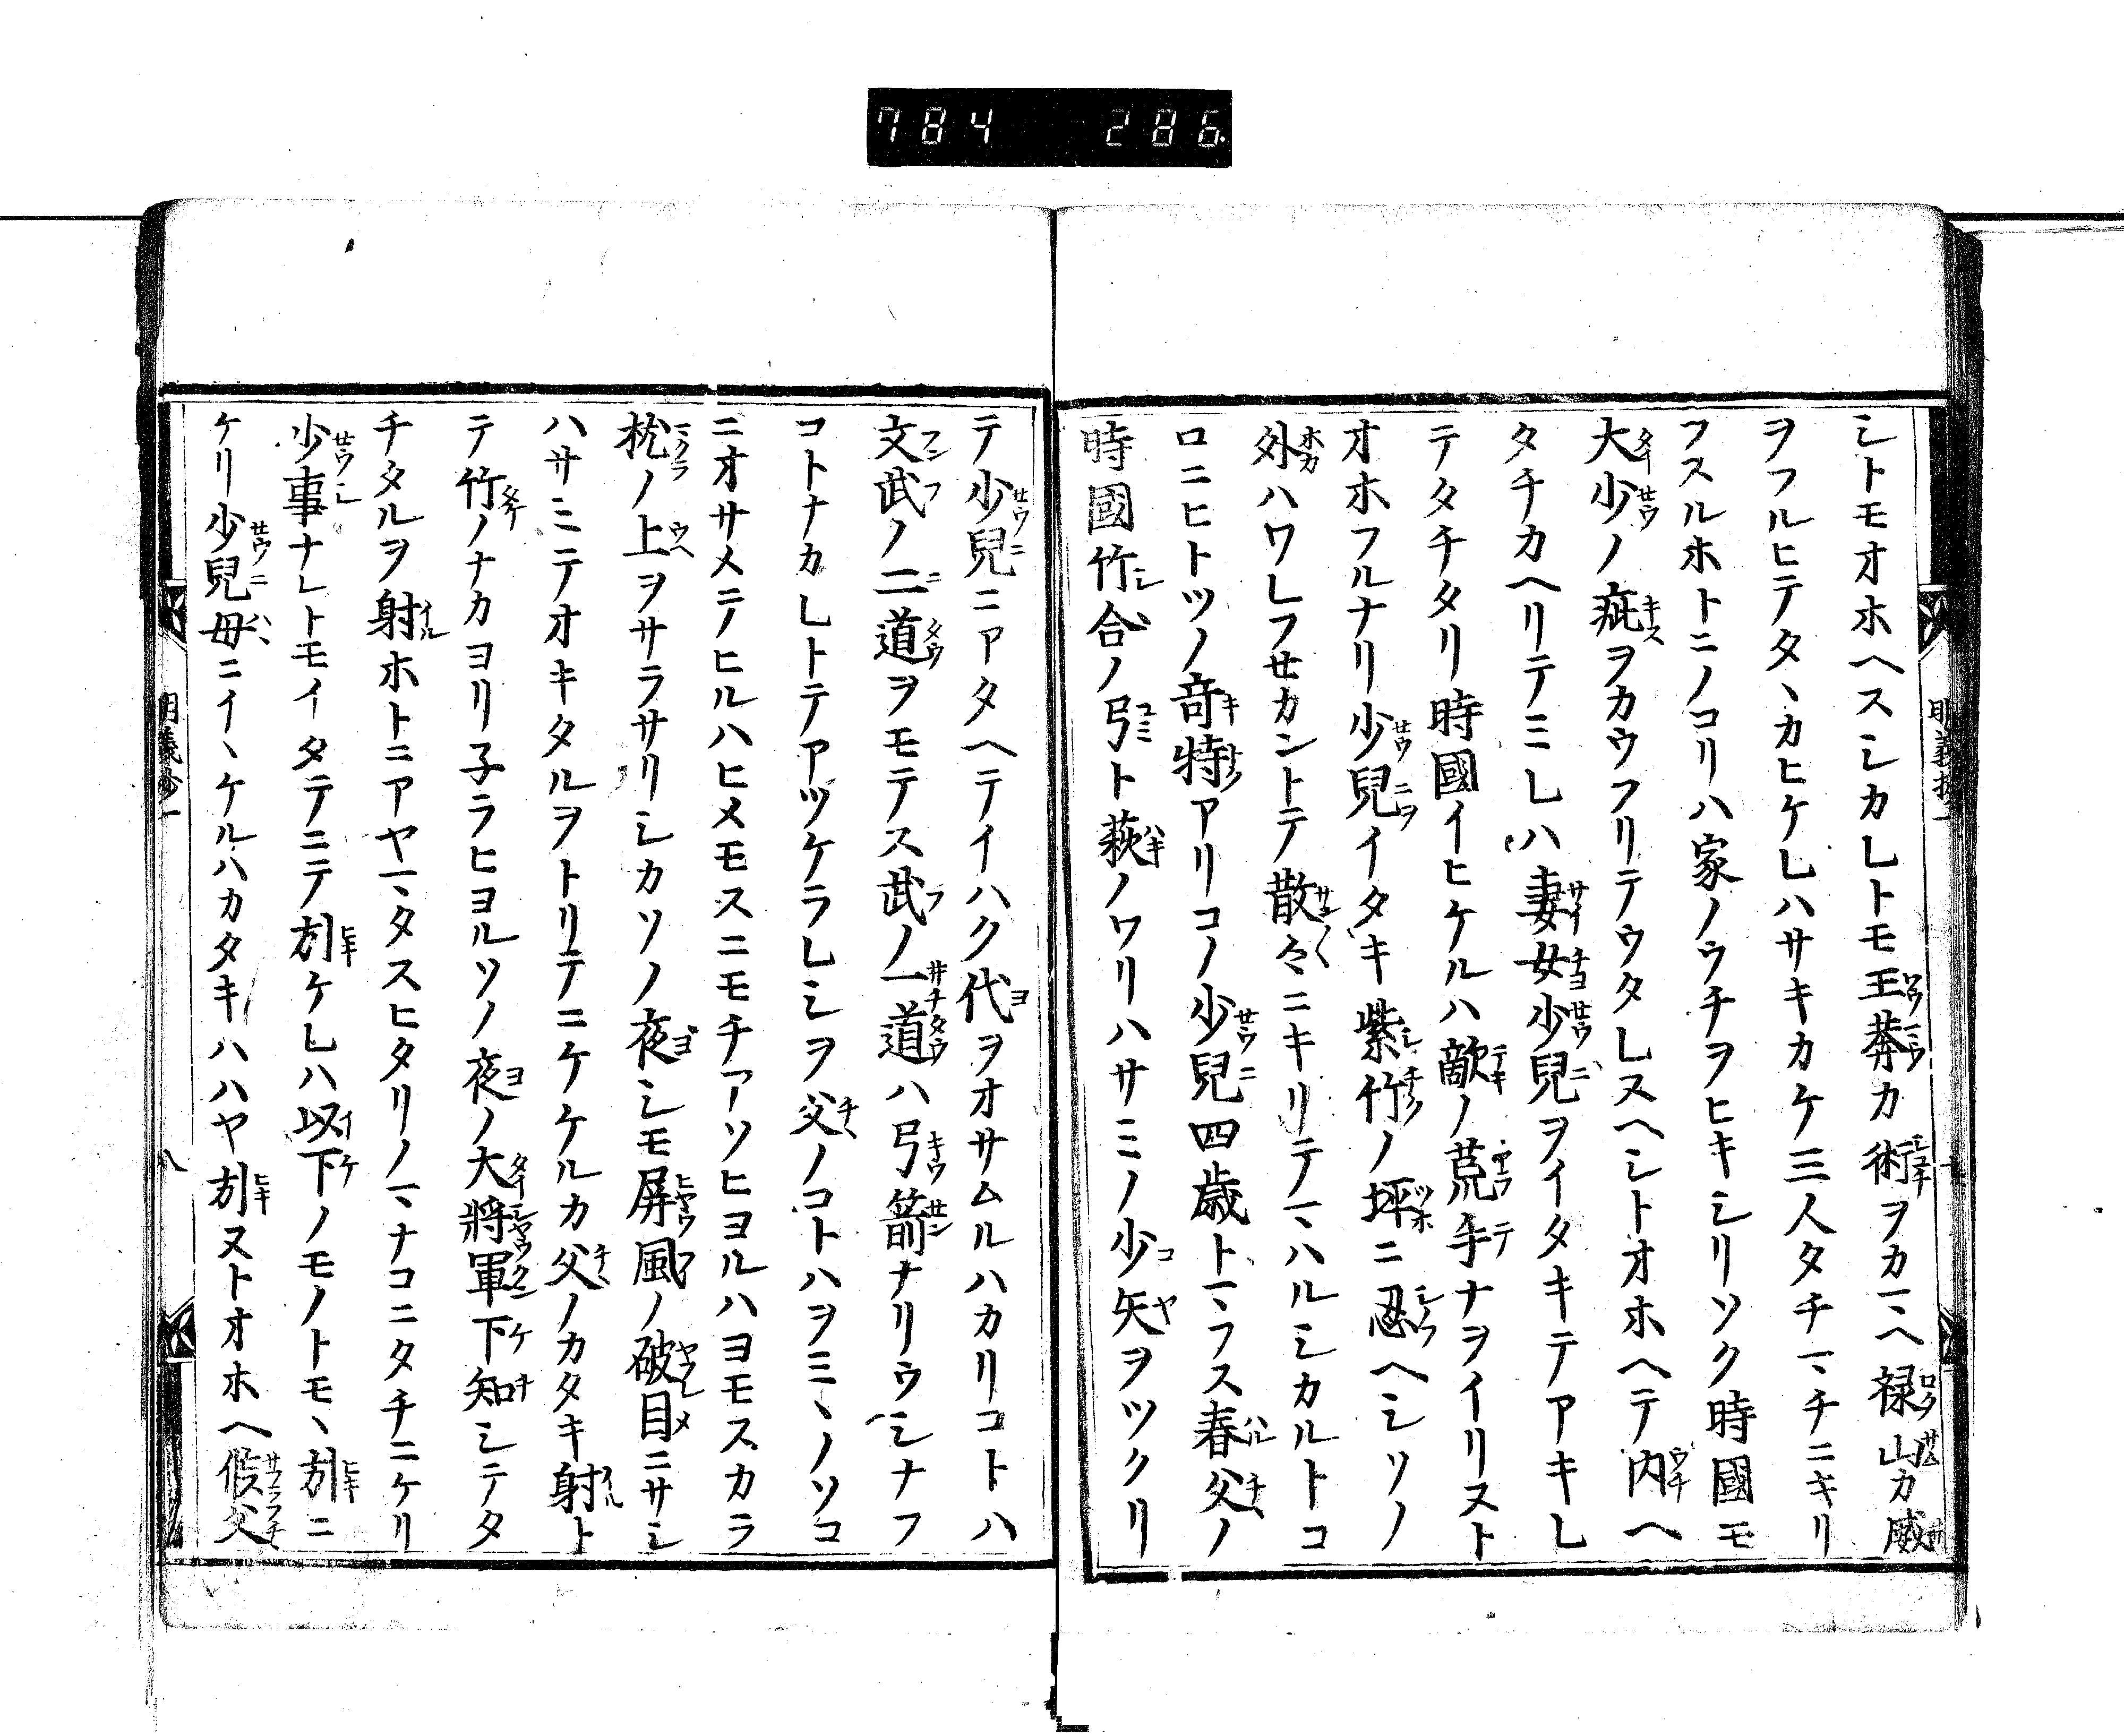 784 286
シトモオホヘスシカレトモ王莽カ術ヲカマヘ禄山カ威
ヲフルヒテタヽカヒケレハサキカケ三人タチマチニキリ
フスルホトニノコリハ家ノウチヲヒキシリソク時國モ
大少ノ疵ヲカウフリテウタレヌヘシトオホヘテ内ヘ
タチカヘリテミレハ妻女少兒ヲイタキテアキレ
テタチタリ時國イヒケルハ敵ノ荒手ナヲイリヌト
オホフルナリ少兒イタキ紫竹ノ坪ニ忍ヘシソノ
外ハワレフセカントテ散々ニキリテマハルシカルトコ
ロニヒトツノ竒特アリコノ少兒四歳トマフス春父ノ
時國竹合ノ弓ト萩ノワリハサミノ少矢ヲツクリ
テ少兒ニアタヘテイハク代ヲオサムルハカリコトハ
文武ノ二道ヲモテス武ノ一道ハ弓箭ナリウシナフ
コトナカレトテアツケラレシヲ父ノコトハヲミヽノソコ
ニオサメテヒルハヒメモスニモチアソヒヨルハヨモスカラ
枕ノ上ヲサラサリシカソノ夜シモ屏風ノ破目ニサシ
ハサミテオキタルヲトリテニケケルカ父ノカタキ射ト
テ竹ノナカヨリ子ラヒヨルソノ夜ノ大將軍下知シテタ
チタルヲ射ホトニアヤマタスヒタリノマナコニタチニケリ
少事ナレトモイタテニテ引ケレハ以下ノモノトモヽ引ニ
ケリ少兒母ニイヽケルハカタキハハヤ引ヌトオホヘ候父
明義抄一
八